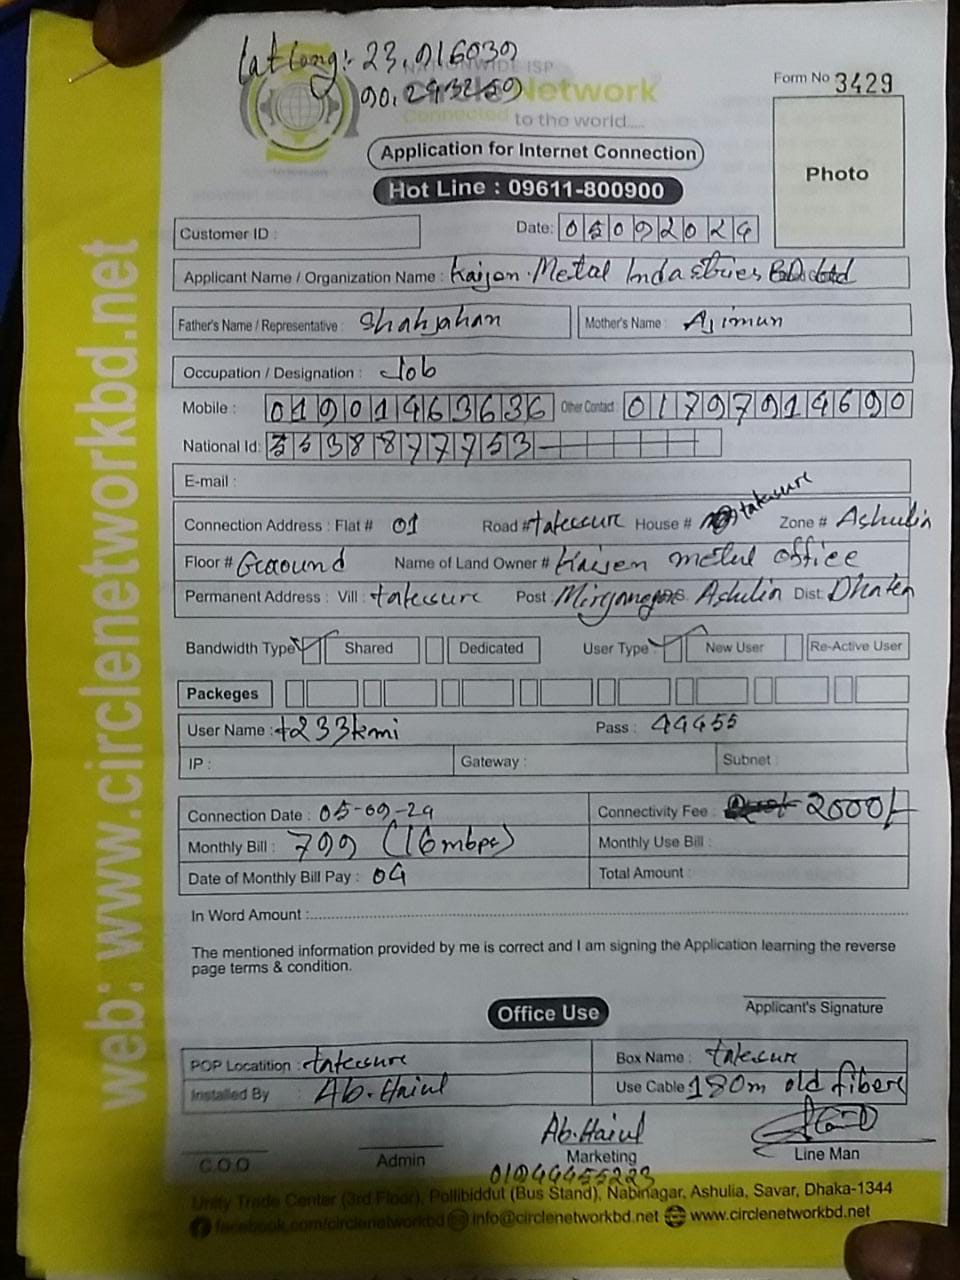 Lat Long:- 23.916039
90.293259
NATIONWIDE ISP
Circle Network
Connected to the world....
Form No 3429
Photo
Application for Internet Connection
Hot Line : 09611-800900
Customer ID :
Date: 05092024
Applicant Name / Organization Name : Kaijen Metal Indastries BD Ltd
Father's Name / Representative : Shahjahan Mother's Name : Ajimun
Occupation / Designation : Job
Mobile : 01901463636 Other Contact 01797914690
National Id: 5538877753
E-mail :
Connection Address : Flat # 01 Road # takesure House # takesure Zone # Ashulia
Floor # Graound Name of Land Owner # Kaijen metal office
Permanent Address : Vill : takesure Post : Ashulia Dist: Dhaka
Bandwidth Type Shared Dedicated User Type New User Re-Active User
Packeges
User Name : t233kmi Pass : 44455
IP : Gateway : Subnet :
Connection Date : 05-09-24 Connectivity Fee : 2000/-
Monthly Bill : 799 (16mbps) Monthly Use Bill :
Date of Monthly Bill Pay : 04 Total Amount :
In Word Amount :
The mentioned information provided by me is correct and I am signing the Application learning the reverse
page terms & condition.
Applicant's Signature
Office Use
POP Locatition : takesure Box Name : takesure
Installed By : Ab. Haiul Use Cable 180m old fiber
Ab. Haiul
C.O.O Admin Marketing Line Man
01944455223
Unity Trade Center (3rd Floor), Pollibiddut (Bus Stand), Nabinagar, Ashulia, Savar, Dhaka-1344
facebook.com/circlenetworkbd info@circlenetworkbd.net www.circlenetworkbd.net
web: www.circlenetworkbd.net